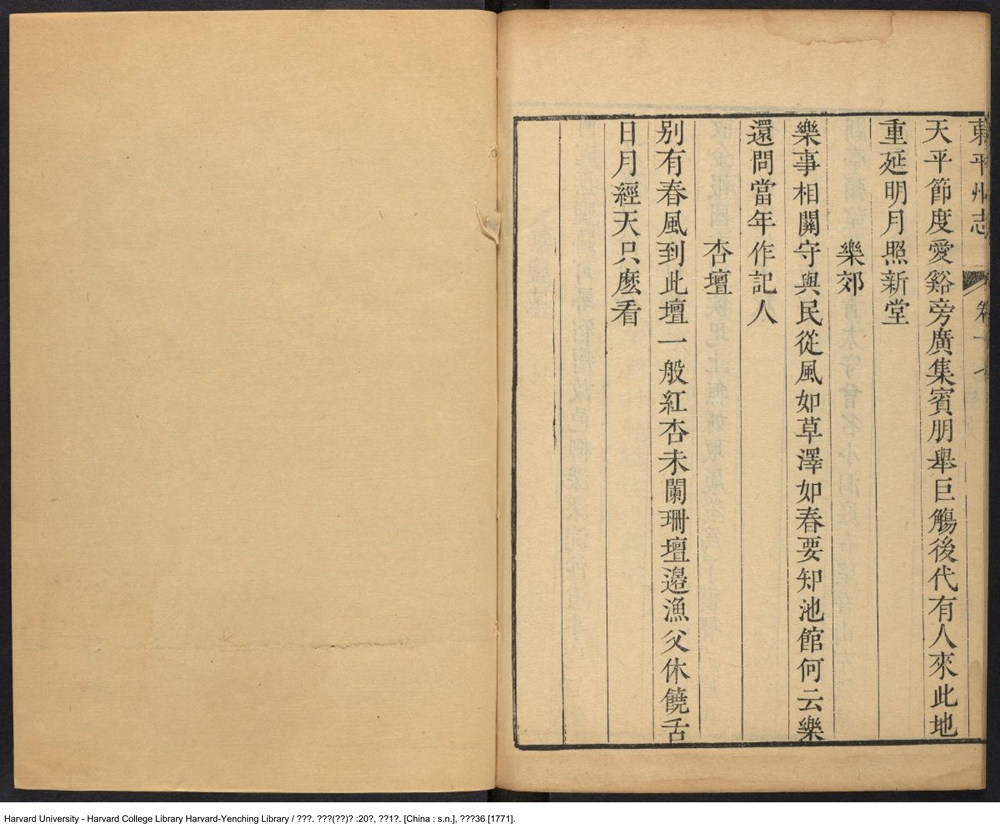 東平州志
卷十七
天平節度愛谿旁廣集賓朋舉巨觴後代有人來此地
重延明月照新堂
樂郊
樂事相關守與民從風如草澤如春要知池館何云樂
還問當年作記人
杏壇
別有春風到此壇一般紅杏未闌珊壇邉漁父休饒舌
日月經天只麽看
Harvard University - Harvard College Library Harvard-Yenching Library / ???. ???(??)? :20?, ??1?. [China : s.n.], ???36 [1771].